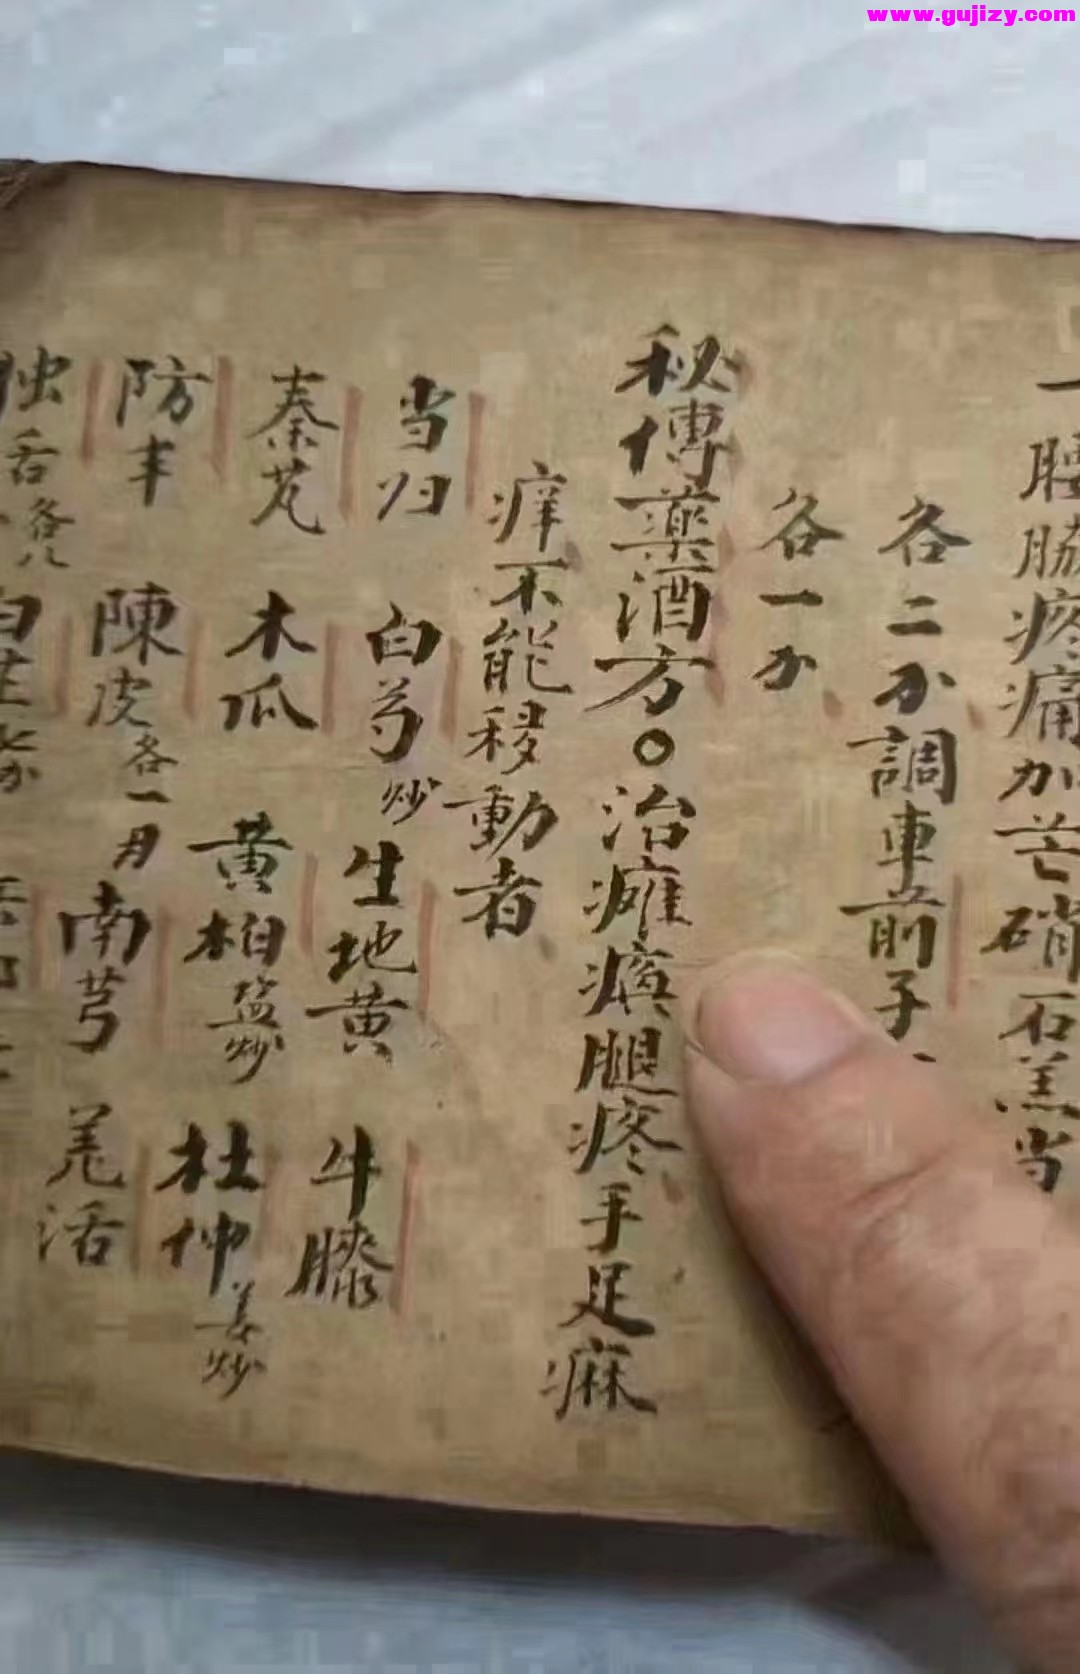 www.gujizy.com
一腰脇疼痛加芒硝石羔当
各二分調車前子
各一分
秘傳藥酒方○治癱瘓腿疼手足麻
痒不能移動者
当归 白芍炒 生地黄 牛膝
秦艽 木瓜 黄柏盐炒 杜仲姜炒
防丰 陳皮各一月 南芎 羌活
独活各八 白芷